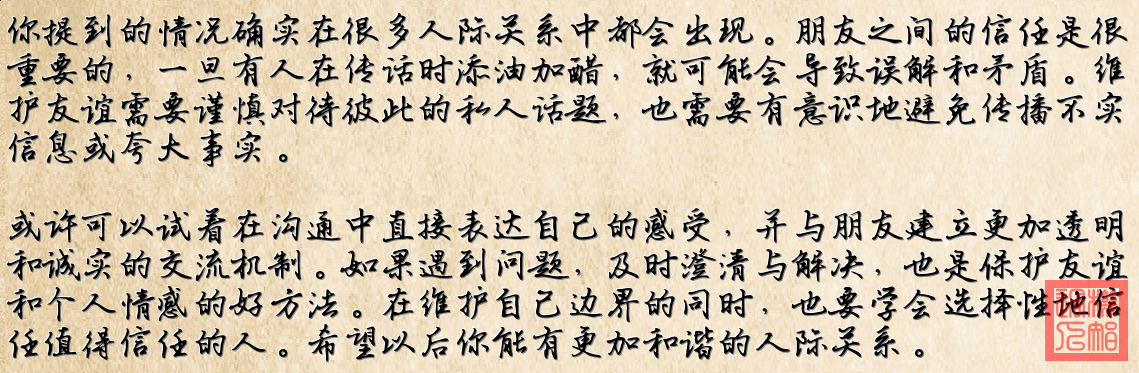 你提到的情况确实在很多人际关系中都会出现。朋友之间的信任是很
重要的，一旦有人在传话时添油加醋，就可能会导致误解和矛盾。维
护友谊需要谨慎对待彼此的私人话题，也需要有意识地避免传播不实
信息或夸大事实。
或许可以试着在沟通中直接表达自己的感受，并与朋友建立更加透明
和诚实的交流机制。如果遇到问题，及时澄清与解决，也是保护友谊
和个人情感的好方法。在维护自己边界的同时，也要学会选择性地信
任值得信任的人。希望以后你能有更加和谐的人际关系。